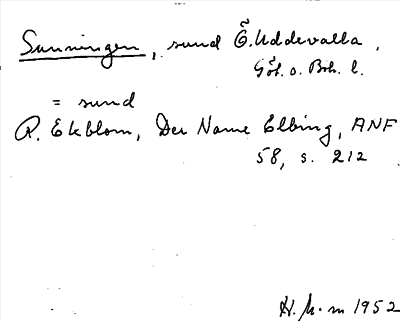 Sunningen, sund Ö. Uddevalla,
Göt. o. Boh. l.
= sund
R. Ekblom, Der Name Elbing, ANF
58, s. 212
1952